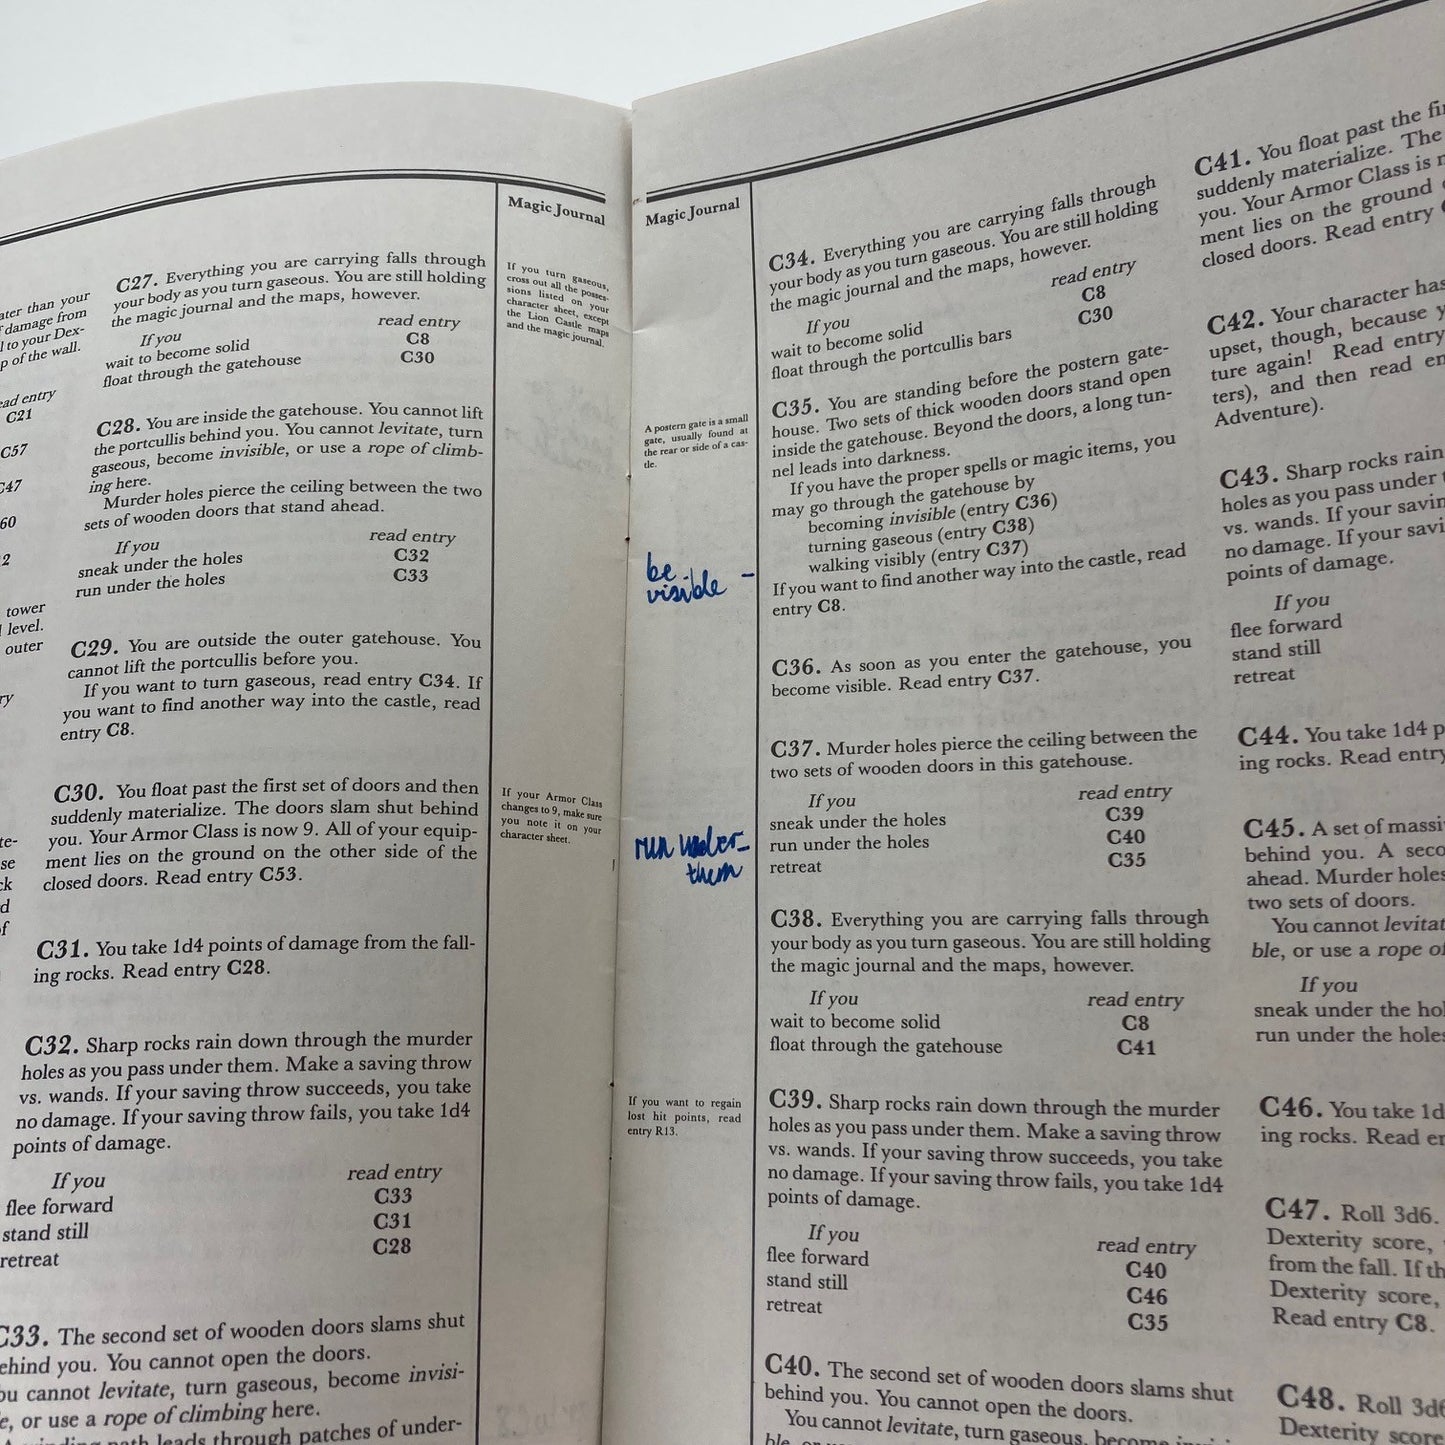 ater than your
damage from
l to your Dex-
p of the wall.
ead entry
C21
C57
C47
60
2
tower
level.
outer
ry
te-
se
ck
d
of
C27. Everything you are carrying falls through
your body as you turn gaseous. You are still holding
the magic journal and the maps, however.
If you read entry
wait to become solid C8
float through the gatehouse C30
C28. You are inside the gatehouse. You cannot lift
the portcullis behind you. You cannot levitate, turn
gaseous, become invisible, or use a rope of climb-
ing here.
Murder holes pierce the ceiling between the two
sets of wooden doors that stand ahead.
If you read entry
sneak under the holes C32
run under the holes C33
C29. You are outside the outer gatehouse. You
cannot lift the portcullis before you.
If you want to turn gaseous, read entry C34. If
you want to find another way into the castle, read
entry C8.
C30. You float past the first set of doors and then
suddenly materialize. The doors slam shut behind
you. Your Armor Class is now 9. All of your equip-
ment lies on the ground on the other side of the
closed doors. Read entry C53.
C31. You take 1d4 points of damage from the fall-
ing rocks. Read entry C28.
C32. Sharp rocks rain down through the murder
holes as you pass under them. Make a saving throw
vs. wands. If your saving throw succeeds, you take
no damage. If your saving throw fails, you take 1d4
points of damage.
If you read entry
flee forward C33
stand still C31
retreat C28
C33. The second set of wooden doors slams shut
ehind you. You cannot open the doors.
ou cannot levitate, turn gaseous, become invisi-
e, or use a rope of climbing here.
winding path leads through patches of under-
Magic Journal
If you turn gaseous,
cross out all the posses-
sions listed on your
character sheet, except
the Lion Castle maps
and the magic journal.
If your Armor Class
changes to 9, make sure
you note it on your
character sheet.
Magic Journal
A postern gate is a small
gate, usually found at
the rear or side of a cas-
tle.
be
visible -
run under-
them
If you want to regain
lost hit points, read
entry R13.
C34. Everything you are carrying falls through
your body as you turn gaseous. You are still holding
the magic journal and the maps, however.
If you read entry
wait to become solid C8
float through the portcullis bars C30
C35. You are standing before the postern gate-
house. Two sets of thick wooden doors stand open
inside the gatehouse. Beyond the doors, a long tun-
nel leads into darkness.
If you have the proper spells or magic items, you
may go through the gatehouse by
becoming invisible (entry C36)
turning gaseous (entry C38)
walking visibly (entry C37)
If you want to find another way into the castle, read
entry C8.
C36. As soon as you enter the gatehouse, you
become visible. Read entry C37.
C37. Murder holes pierce the ceiling between the
two sets of wooden doors in this gatehouse.
If you read entry
sneak under the holes C39
run under the holes C40
retreat C35
C38. Everything you are carrying falls through
your body as you turn gaseous. You are still holding
the magic journal and the maps, however.
If you read entry
wait to become solid C8
float through the gatehouse C41
C39. Sharp rocks rain down through the murder
holes as you pass under them. Make a saving throw
vs. wands. If your saving throw succeeds, you take
no damage. If your saving throw fails, you take 1d4
points of damage.
If you read entry
flee forward C40
stand still C46
retreat C35
C40. The second set of wooden doors slams shut
behind you. You cannot open the doors.
You cannot levitate, turn gaseous, become invisi-
C41. You float past the fi
suddenly materialize. The
you. Your Armor Class is
ment lies on the ground
closed doors. Read entry
C42. Your character has
upset, though, because y
ture again! Read entry
ters), and then read en
Adventure).
C43. Sharp rocks rain
holes as you pass under
vs. wands. If your savin
no damage. If your savi
points of damage.
If you
flee forward
stand still
retreat
C44. You take 1d4 p
ing rocks. Read entry
C45. A set of massi
behind you. A seco
ahead. Murder holes
two sets of doors.
You cannot levitat
ble, or use a rope o
If you
sneak under the hol
run under the holes
C46. You take 1d
ing rocks. Read en
C47. Roll 3d6.
Dexterity score,
from the fall. If th
Dexterity score,
Read entry C8.
C48. Roll 3d6
Dexterity score